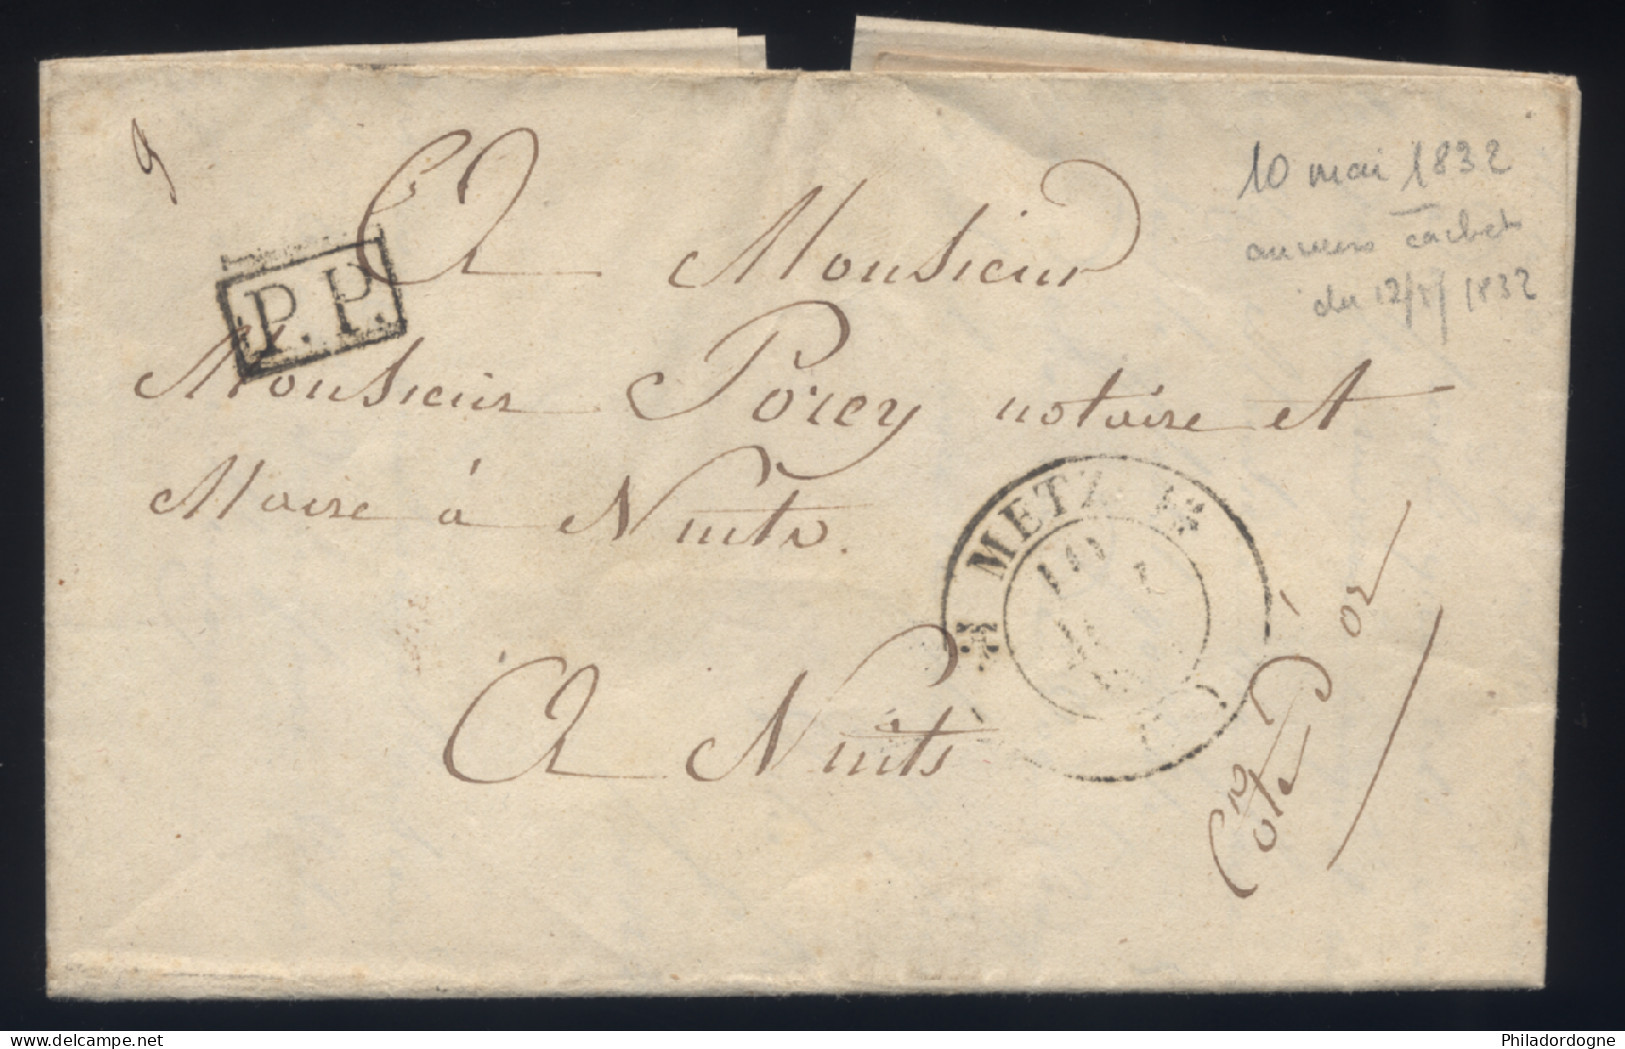 9
10 mai 1832
au verso cachet
du 12/5/1832
P.P.
A Monsieur
Monsieur Porey notaire et
Maire à Nuits.
METZ
10
A Nuits
Côte d'or
Philadordogne